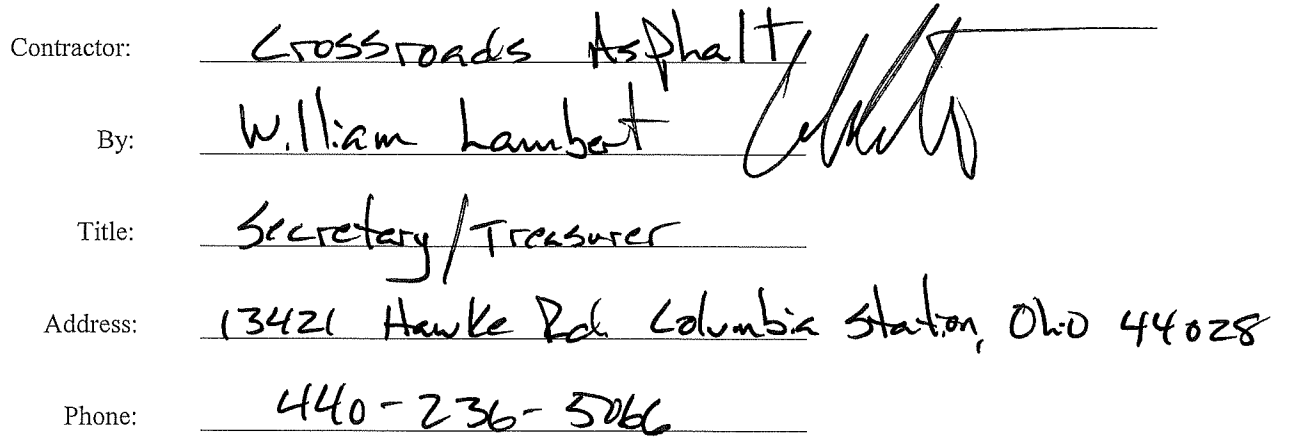 Contractor: Crossroads Asphalt
By: William Lambert
Title: Secretary/Treasurer
Address: 13421 Hawke Rd. Columbia Station, Ohio 44028
Phone: 440-236-5066